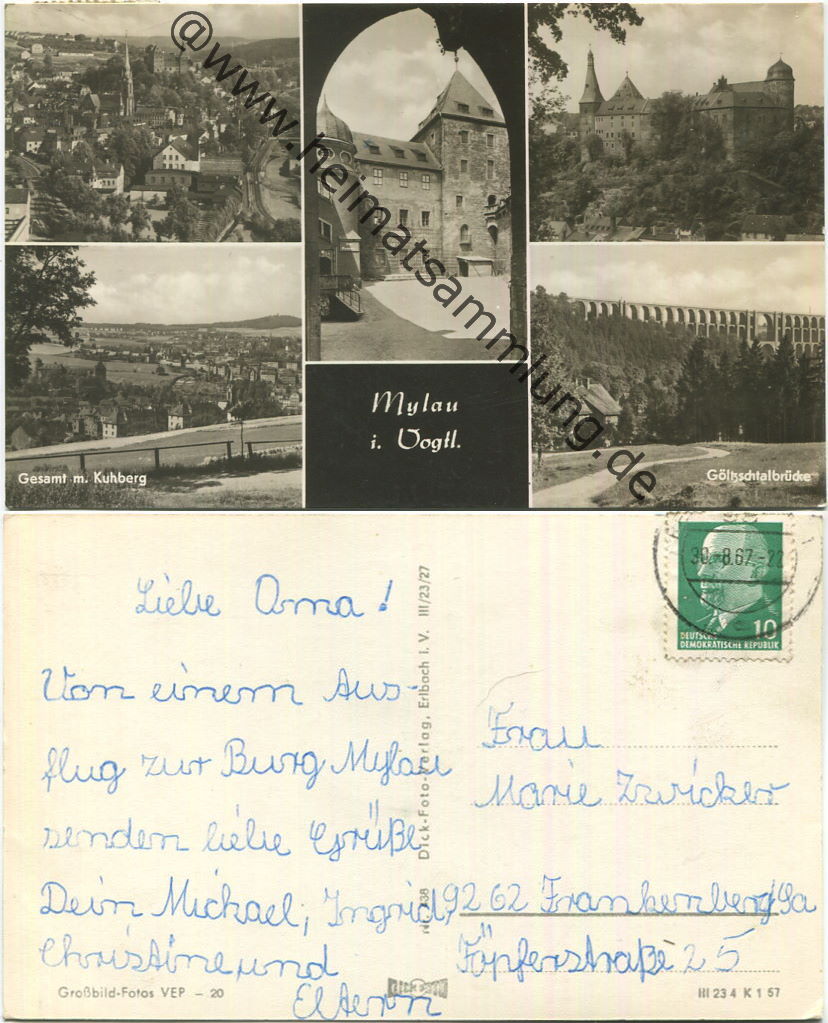 @www.heimatsammlung.de
Mylau
i. Vogtl.
Gesamt m. Kuhberg
Göltzschtalbrücke
Liebe Oma!
Von einem Aus-
flug zur Burg Mylau
senden liebe Grüße
Dein Michael, Ingrid,
Christine, und
Eltern
Großbild-Fotos VEP – 20
Dick-Foto-Verlag, Erlbach i. V. III/23/27
30.-8.67-22
10
DEUTSCHE
DEMOKRATISCHE REPUBLIK
Frau
Marie Zwicker
9262 Frankenberg/Sa
Töpferstraße 25
III 23 4 K 1 57